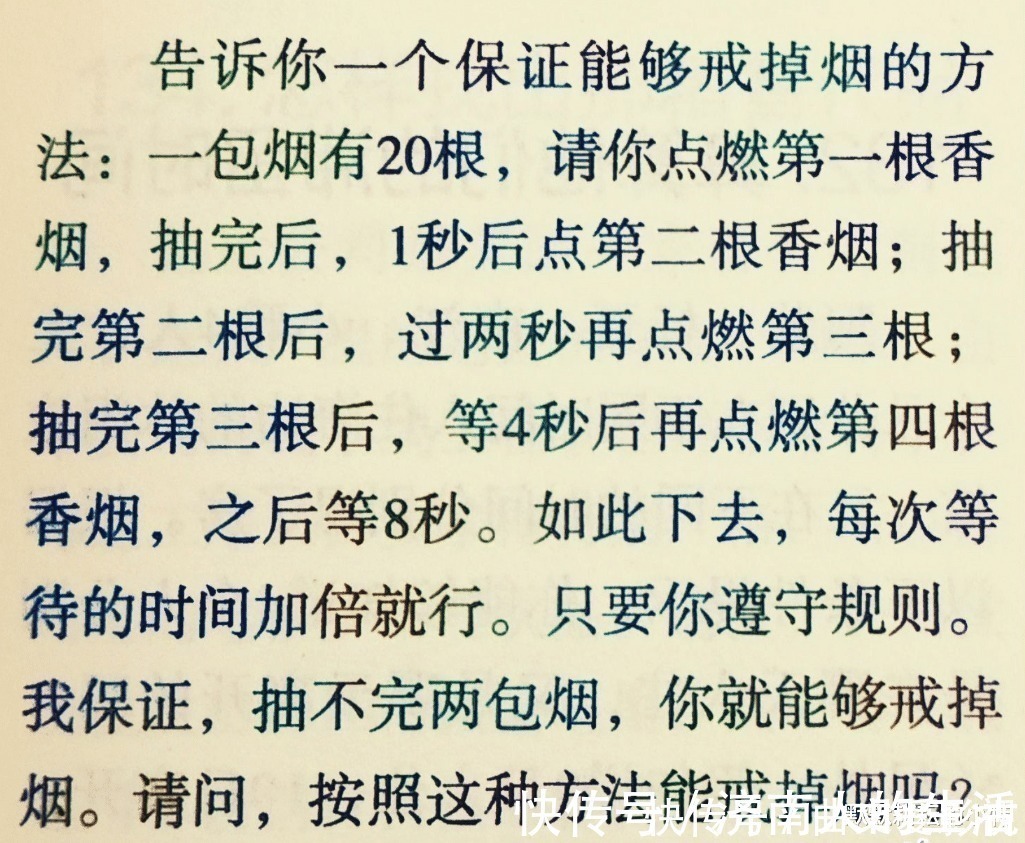 告诉你一个保证能够戒掉烟的方
法：一包烟有20根，请你点燃第一根香
烟，抽完后，1秒后点第二根香烟；抽
完第二根后，过两秒再点燃第三根；
抽完第三根后，等4秒后再点燃第四根
香烟，之后等8秒。如此下去，每次等
待的时间加倍就行。只要你遵守规则。
我保证，抽不完两包烟，你就能够戒掉
烟。请问，按照这种方法能戒掉烟吗？
快传号